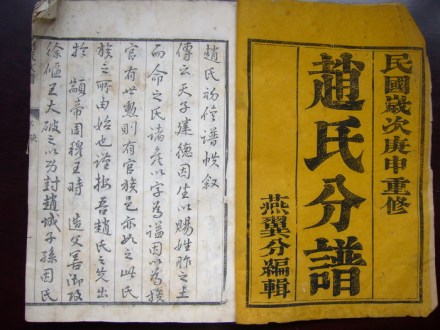 民國歲次庚申重修
趙氏分譜
燕翼分編輯
趙氏初修譜帙叙
傳云天子建德因生以賜姓胙之土
而命之氏諸矦以字為謚因以為族
官有世勲則有官族邑亦如之此氏
族之所由始也謹按吾趙氏之先出
於顓帝周穆王時造父善御攻
徐偃王大破之以功封趙城子孫因氏